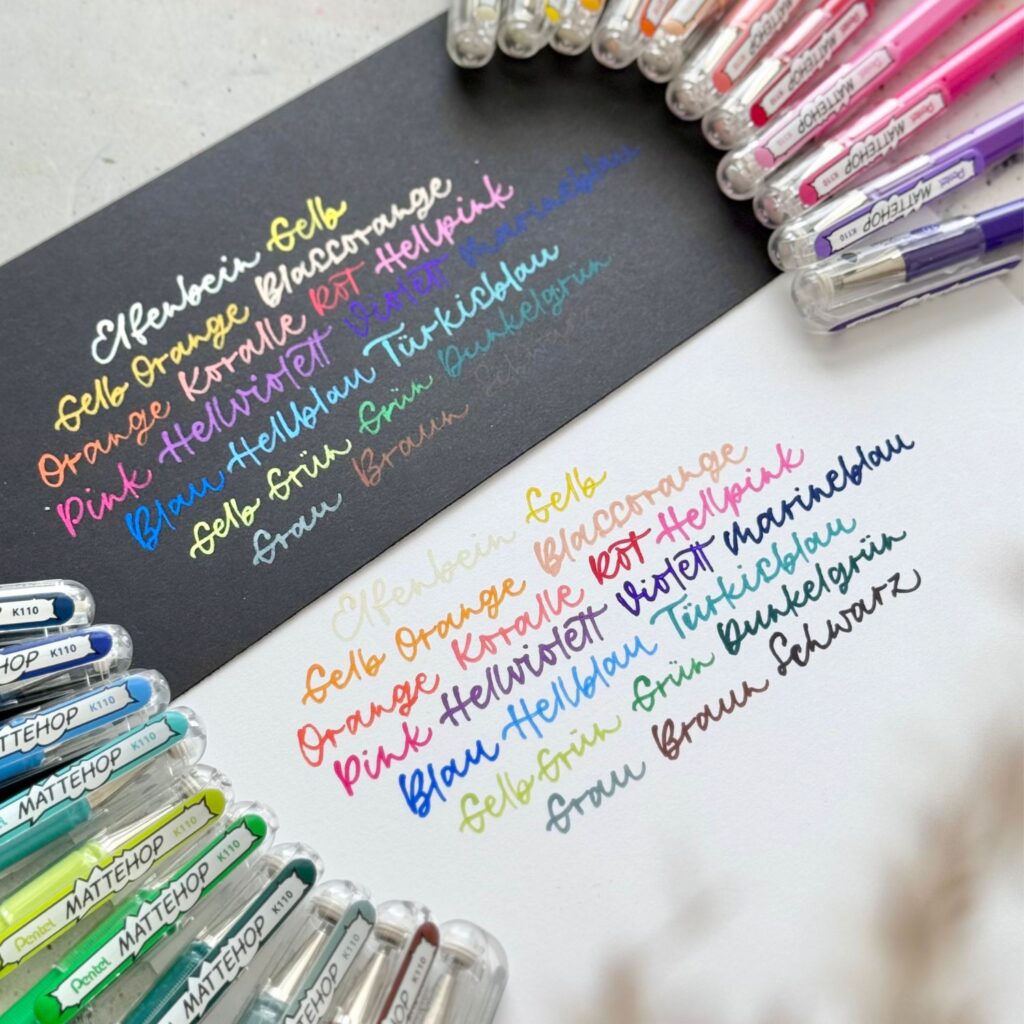 Elfenbein Gelb
Gelb Orange Blassorange
Orange Koralle Rot Hellpink
Pink Hellviolett Violett Marineblau
Blau Hellblau Türkisblau
Gelb Grün Grün Dunkelgrün
Grau Braun Schwarz
Elfenbein Gelb
Gelb Orange Blassorange
Orange Koralle Rot Hellpink
Pink Hellviolett Violett Marineblau
Blau Hellblau Türkisblau
Gelb Grün Grün Dunkelgrün
Grau Braun Schwarz
MATTEHOP
MATTEHOP
MATTEHOP K110
Pentel MATTEHOP K110
Pentel MATTEHOP K110
Pentel MATTEHOP K110
K110
HOP K110
ATTEHOP K110
MATTEHOP K110
Pentel MATTEHOP K110
Pentel MATTEHOP K110
MATTEHOP K110
MATTEHOP K110
K110